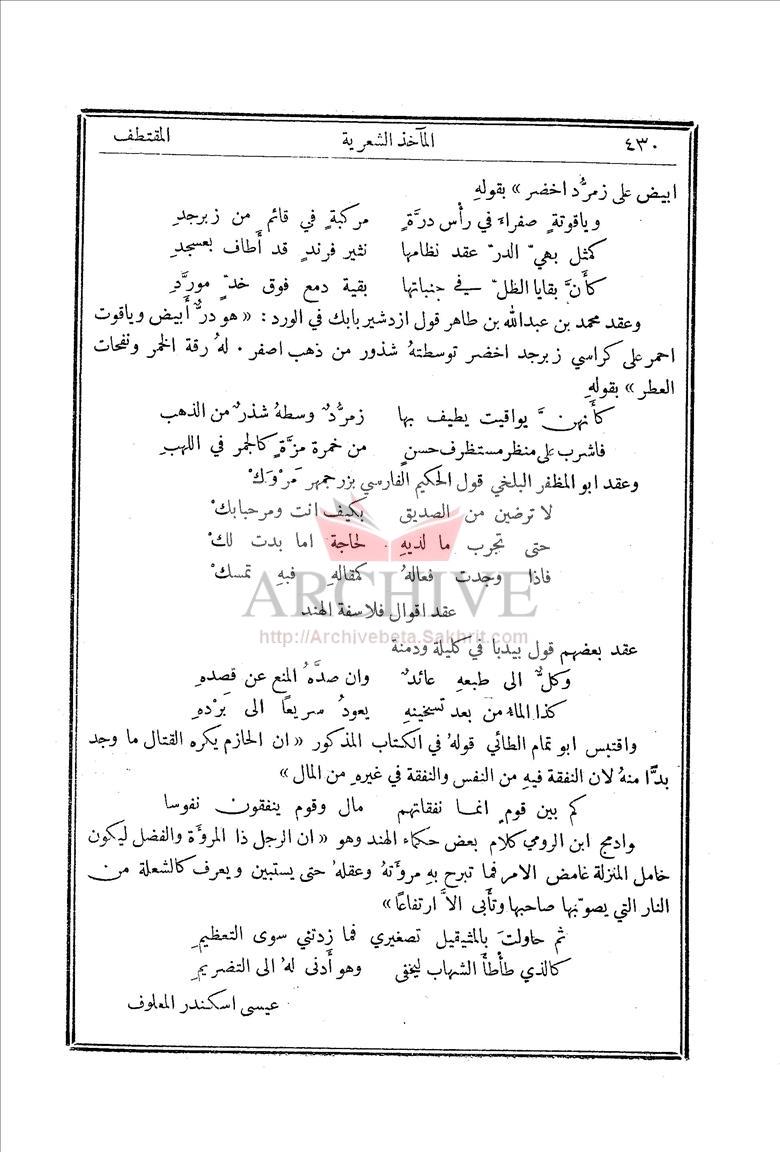 ٤٣٠ المآخذ الشعرية المقتطف
ابيض على زمرُّد اخضر » بقولهِ
وياقوتةٍ صفراءَ في رأْس درَّةٍ مركبةٍ في قائم من زبرجدِ
كمثل بهيّ الدرّ عقد نظامها نثير فرندٍ قد أَطاف بعسجدِ
كأَنَّ بقايا الظلّ في جنباتها بقية دمع فوق خدّ مورَّدِ
وعقد محمد بن عبدالله بن طاهر قول ازدشير بابك في الورد : « هو درٌّ أبيض وياقوت
احمر على كراسي زبرجد اخضر توسطتهُ شذور من ذهب اصفر ٠ لهُ رقة الخمر ونفحات
العطر » بقولهِ
كأَنهنَّ يواقيت يطيف بها زمرُّدٌ وسطهُ شذرٌ من الذهب
فاشرب على منظر مستظرف حسنٍ من خمرة مزَّةٍ كالجمر في اللهبِ
وعقد ابو المظفر البلخي قول الحكيم الفارسي بزرجمهر مَرْوَكْ
لا ترضين من الصديق بكيف انت ومرحبابكْ
حتى تجرب ما لديهِ لحاجة اما بدت لكْ
فاذا وجدت فعالهُ كمقالهِ فبهِ تمسكْ
ARCHIVE
عقد اقوال فلاسفة الهند
http://Archivebeta.Sakhrit.com
عقد بعضهم قول بيدبا في كليلة ودمنة
وكلٌّ الى طبعهِ عائدٌ وان صدَّهُ المنع عن قصدهِ
كذا الماءُ من بعد تسخينهِ يعودُ سريعًا الى بَرْدهِ
واقتبس ابو تمام الطائي قولهُ في الكتاب المذكور « ان الحازم يكره القتال ما وجد
بدًّا منهُ لان النفقة فيهِ من النفس والنفقة في غيرهِ من المال »
كم بين قومٍ انما نفقاتهم مال وقوم ينفقون نفوسا
وادمج ابن الرومي كلام بعض حكماء الهند وهو « ان الرجل ذا المروأَة والفضل ليكون
خامل المنزلة غامض الامر فما تبرح بهِ مروأَتهُ وعقلهُ حتى يستبين ويعرف كالشعلة من
النار التي يصوّبها صاحبها وتأَبى الاَّ ارتفاعًا »
ثم حاولتَ بالمثيقيل تصغيري فما زدتني سوى التعظيمِ
كالذي طأْطأَ الشهاب ليخفى وهو أَدنى لهُ الى التضريمِ
عيسى اسكندر المعلوف